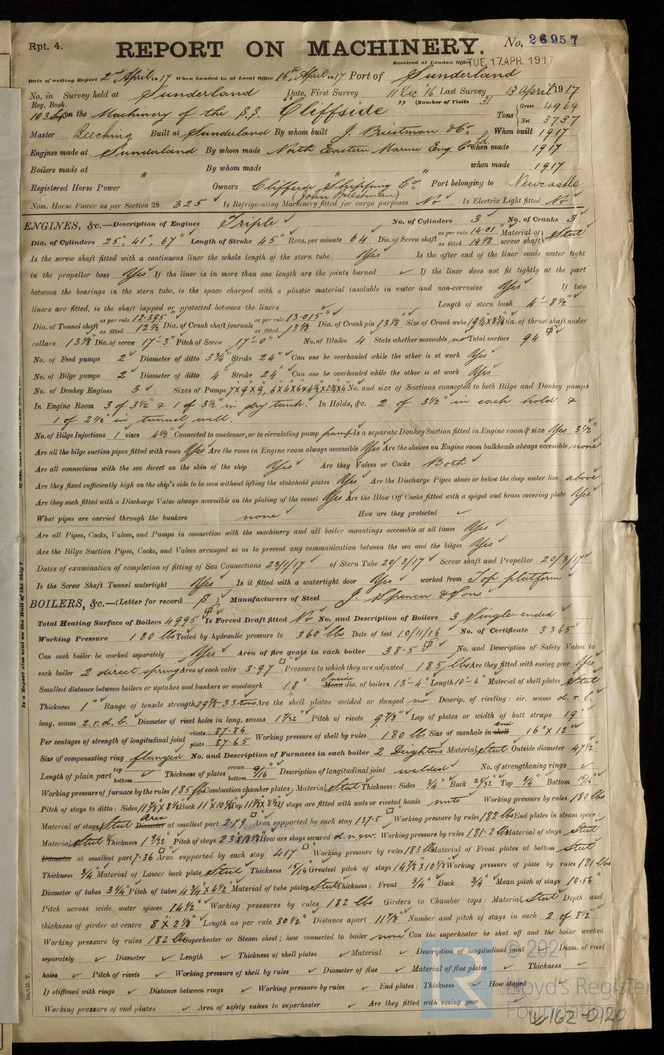 Rpt. 4.
REPORT ON MACHINERY.
No. 26957
Received at London Office TUE. 17 APR. 1917
Date of writing Report 2nd April 1917 When handed in at Local Office 16th April 1917 Port of Sunderland
No. in Survey held at Sunderland Date, First Survey 11 Dec 16 Last Survey 13 April 1917
Reg. Book. (Number of Visits 31)
on the Machinery of the S.S. "Cliffside" Tons Gross 4969
Net 3737
Master Beeching Built at Sunderland By whom built J. Priestman & Co. When built 1917
Engines made at Sunderland By whom made North Eastern Marine Eng. Co. Ld when made 1917
Boilers made at " By whom made " when made 1917
Registered Horse Power Owners Cliffside Shipping Co. Port belonging to Newcastle
Nom. Horse Power as per Section 28 325 Is Refrigerating Machinery fitted for cargo purposes No Is Electric Light fitted No
ENGINES, &c.—Description of Engines Triple No. of Cylinders 3 No. of Cranks 3
Dia. of Cylinders 25", 41", 67" Length of Stroke 45" Revs. per minute 64 Dia. of Screw shaft as per rule 14.01 as fitted 14 7/8 Material of screw shaft Steel
Is the screw shaft fitted with a continuous liner the whole length of the stern tube Yes Is the after end of the liner made water tight
in the propeller boss Yes If the liner is in more than one length are the joints burned ✓ If the liner does not fit tightly at the part
between the bearings in the stern tube, is the space charged with a plastic material insoluble in water and non-corrosive Yes If two
liners are fitted, is the shaft lapped or protected between the liners ✓ Length of stern bush 4'-8½"
Dia. of Tunnel shaft as per rule 12.385 as fitted 12½ Dia. of Crank shaft journals as per rule 13.015" as fitted 13⅛ Dia. of Crank pin 13⅛" Size of Crank webs Dia. of thrust shaft under
collars 13⅛" Dia. of screw 17'-3" Pitch of Screw 17'-0" No. of Blades 4 State whether moveable no Total surface 94
No. of Feed pumps 2 Diameter of ditto 3¾" Stroke 24" Can one be overhauled while the other is at work Yes
No. of Bilge pumps 2 Diameter of ditto 4" Stroke 24" Can one be overhauled while the other is at work Yes
No. of Donkey Engines 3 Sizes of Pumps No. and size of Suctions connected to both Bilge and Donkey pumps
In Engine Room 3 of 3½" & 1 of 3½" in dry tank. In Holds, &c. 2 of 3½" in each hold &
1 of 2½" in tunnel well.
No. of Bilge Injections 1 sizes 4½ Connected to condenser, or to circulating pump pump Is a separate Donkey Suction fitted in Engine room & size Yes 3½
Are all the bilge suction pipes fitted with roses Yes Are the roses in Engine room always accessible Yes Are the sluices on Engine room bulkheads always accessible none
Are all connections with the sea direct on the skin of the ship Yes Are they Valves or Cocks Both
Are they fixed sufficiently high on the ship's side to be seen without lifting the stokehold plates Yes Are the Discharge Pipes above or below the deep water line above
Are they each fitted with a Discharge Valve always accessible on the plating of the vessel Yes Are the Blow Off Cocks fitted with a spigot and brass covering plate Yes
What pipes are carried through the bunkers none How are they protected ✓
Are all Pipes, Cocks, Valves, and Pumps in connection with the machinery and all boiler mountings accessible at all times Yes
Are the Bilge Suction Pipes, Cocks, and Valves arranged so as to prevent any communication between the sea and the bilges Yes
Dates of examination of completion of fitting of Sea Connections 23/1/17 of Stern Tube 20/3/17 Screw shaft and Propeller 20/3/17
Is the Screw Shaft Tunnel watertight Yes Is it fitted with a watertight door Yes worked from Top platform
BOILERS, &c.—(Letter for record S) Manufacturers of Steel J. Spencer & Sons
Total Heating Surface of Boilers 4995 Is Forced Draft fitted No No. and Description of Boilers 3 Single ended
Working Pressure 180 lbs Tested by hydraulic pressure to 360 lbs Date of test 10/11/16 No. of Certificate 3365
Can each boiler be worked separately Yes Area of fire grate in each boiler 38.5 No. and Description of Safety Valves to
each boiler 2 direct spring Area of each valve 3.97 Pressure to which they are adjusted 185 lbs Are they fitted with easing gear Yes
Smallest distance between boilers or uptakes and bunkers or woodwork 18" Inside dia. of boilers 13'-4" Length 10'-6" Material of shell plates Steel
Thickness 1" Range of tensile strength Are the shell plates welded or flanged no Descrip. of riveting: cir. seams d.r.l.
long. seams t.r.d.b. Diameter of rivet holes in long. seams 1 1/32" Pitch of rivets Lap of plates or width of butt straps 19"
Per centages of strength of longitudinal joint rivets 87.86 plate 87.65 Working pressure of shell by rules 180 lbs Size of manhole in end 16" x 12"
Size of compensating ring flanged No. and Description of Furnaces in each boiler 2 Deightons Material Steel Outside diameter 47½"
Length of plain part top bottom ✓ Thickness of plates crown bottom 9/16" Description of longitudinal joint welded No. of strengthening rings ✓
Working pressure of furnace by the rules 185 lbs Combustion chamber plates: Material Steel Thickness: Sides ¾" Back 21/32" Top ¾" Bottom 15/16"
Pitch of stays to ditto: Sides Back Top If stays are fitted with nuts or riveted heads nuts Working pressure by rules 182 lbs
Material of stays Steel Area at smallest part 2.79 Area supported by each stay 137.5 Working pressure by rules 182 lbs End plates in steam space
Material Steel Thickness 1 1/32" Pitch of stays How are stays secured d.n.&w. Working pressure by rules 181.2 lbs Material of stays Steel
Diameter at smallest part 7.36 Area supported by each stay 417 Working pressure by rules 183 lbs Material of Front plates at bottom Steel
Thickness ¾" Material of Lower back plate Steel Thickness 15/16 Greatest pitch of stays Working pressure of plate by rules 181 lbs
Diameter of tubes 3¼" Pitch of tubes 4¾ x 4½ Material of tube plates Steel Thickness: Front ¾" Back ¾" Mean pitch of stays 10.56"
Pitch across wide water spaces 14½" Working pressures by rules 182 lbs Girders to Chamber tops: Material Steel Depth and
thickness of girder at centre Length as per rule 30½" Distance apart 11⅞" Number and pitch of stays in each 2 of 8½"
Working pressure by rules 182 lbs Superheater or Steam chest; how connected to boiler none Can the superheater be shut off and the boiler worked
separately ✓ Diameter ✓ Length ✓ Thickness of shell plates ✓ Material ✓ Description of longitudinal joint ✓ Diam. of rivet
holes ✓ Pitch of rivets ✓ Working pressure of shell by rules ✓ Diameter of flue ✓ Material of flue plates ✓ Thickness ✓
If stiffened with rings ✓ Distance between rings ✓ Working pressure by rules ✓ End plates: Thickness ✓ How stayed
Working pressure of end plates ✓ Area of safety valves to superheater ✓ Are they fitted with easing gear ✓
© 2021
Lloyd's Register
Foundation
W162-0120